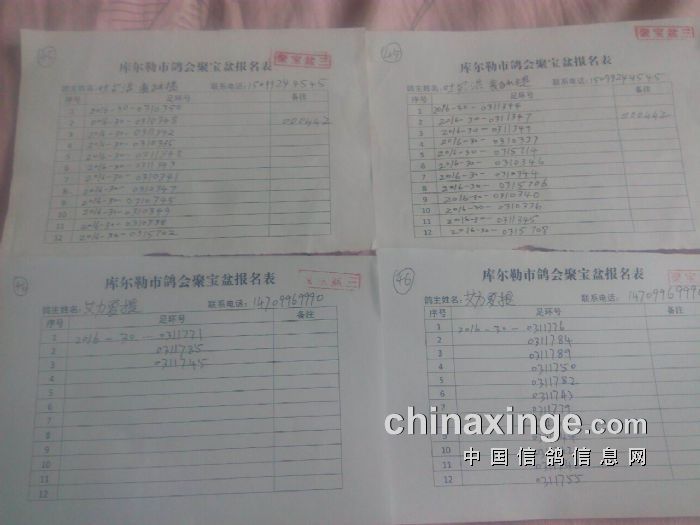 45
聚宝盆三
库尔勒市鸽会聚宝盆报名表
鸽主姓名: 联系电话: 15099244545
序号 足环号 备注
1 2016-30-0310350
2 2016-30-0310348 000442
3 2016-30-0310342
4 2016-30-
5 2016-30-
6 2016-30-
7 2016-30-0310341
8 2016-30-0310347
9 2016-30-0310345
10 2016-30-0310349
11 2016-30-
12 2016-30-0315702
聚宝盆三
库尔勒市鸽会聚宝盆报名表
鸽主姓名: 联系电话: 15099244545
序号 足环号 备注
1 2016-30-0311344
2 2016-30-0311347 000442
3 2016-30-0311349
4 2016-30-0310337
5 2016-30-0315714
6 2016-30-0310346
7 2016-30-0310344
8 2016-30-0315706
9 2016-30-0310340
10 2016-30-0310336
11 2016-30-0311345
12 2016-30-0315708
46
库尔勒市鸽会聚宝盆报名表
鸽主姓名: 艾力 联系电话: 14709969990
序号 足环号 备注
1 2016-30-0311771
2 0311785
3 0311745
4
5
6
7
8
9
10
11
12
46
库尔勒市鸽会聚宝盆报名表
鸽主姓名: 艾力 联系电话: 14709969990
序号 足环号 备注
1 2016-30-0311776
2 0311784
3 0311789
4 0311750
5 0311782
6 0311743
7 0311779
8
9
10
11
12 0311755
chinaxinge.com
中国信鸽信息网